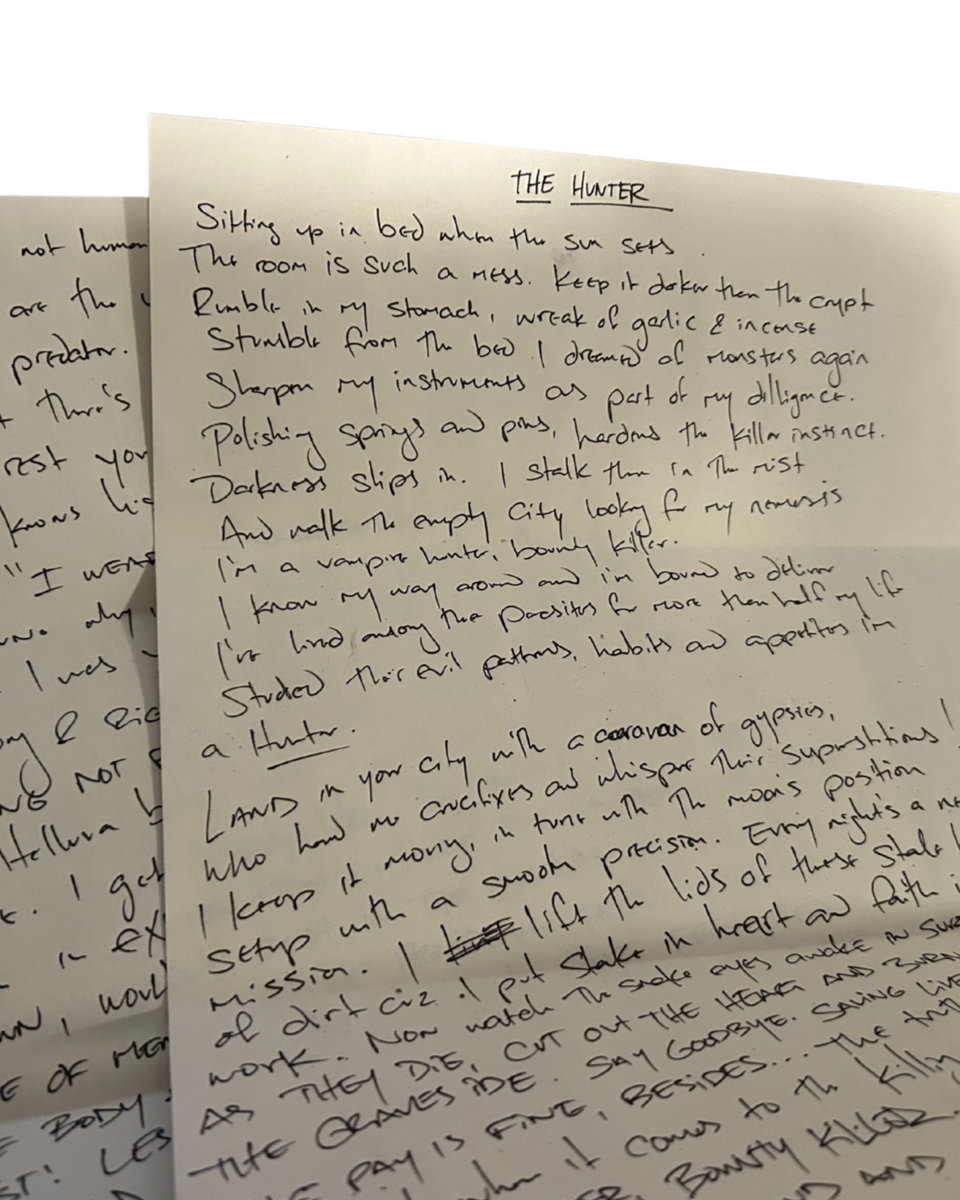 THE HUNTER
Sitting up in bed when the sun sets.
The room is such a mess. Keep it darker then the crypt
Rumble in my stomach, wreak of garlic & incense
Stumble from the bed I dreamed of monsters again
Sharpen my instruments as part of my dilligence.
Polishing springs and pins, hardens the killer instinct.
Darkness slips in. I stalk them in the mist
And walk the empty city looking for my nemesis
I'm a vampire hunter, bounty killer.
I know my way around and i'm bound to deliver
I've lived among the parasites for more than half my life
Studied their evil patterns, habits and appetites I'm
a Hunter.
LANDS in your city with a caravan of gypsies,
who hand me crucifixes and whisper their superstitions!
I keep it moving, in tune with the moon's position
setup with a smooth precision. Every night's a
mission. I lift the lids of these stale
of dirt cuz I put stake in heart and faith
work. Now watch the snake eyes awake in
AS THEY DIE, CUT OUT THE HEART AND BURN
THE GRAVESIDE. SAY GOODBYE. SAVING
PAY IS FINE, BESIDES... The
when it comes to the killing
BOUNTY KILLER.
AND
not human
are the
predator.
there's
rest you
knows his
"I
why
I was
&
NOT
Helluva
I get
in
OF
BODY